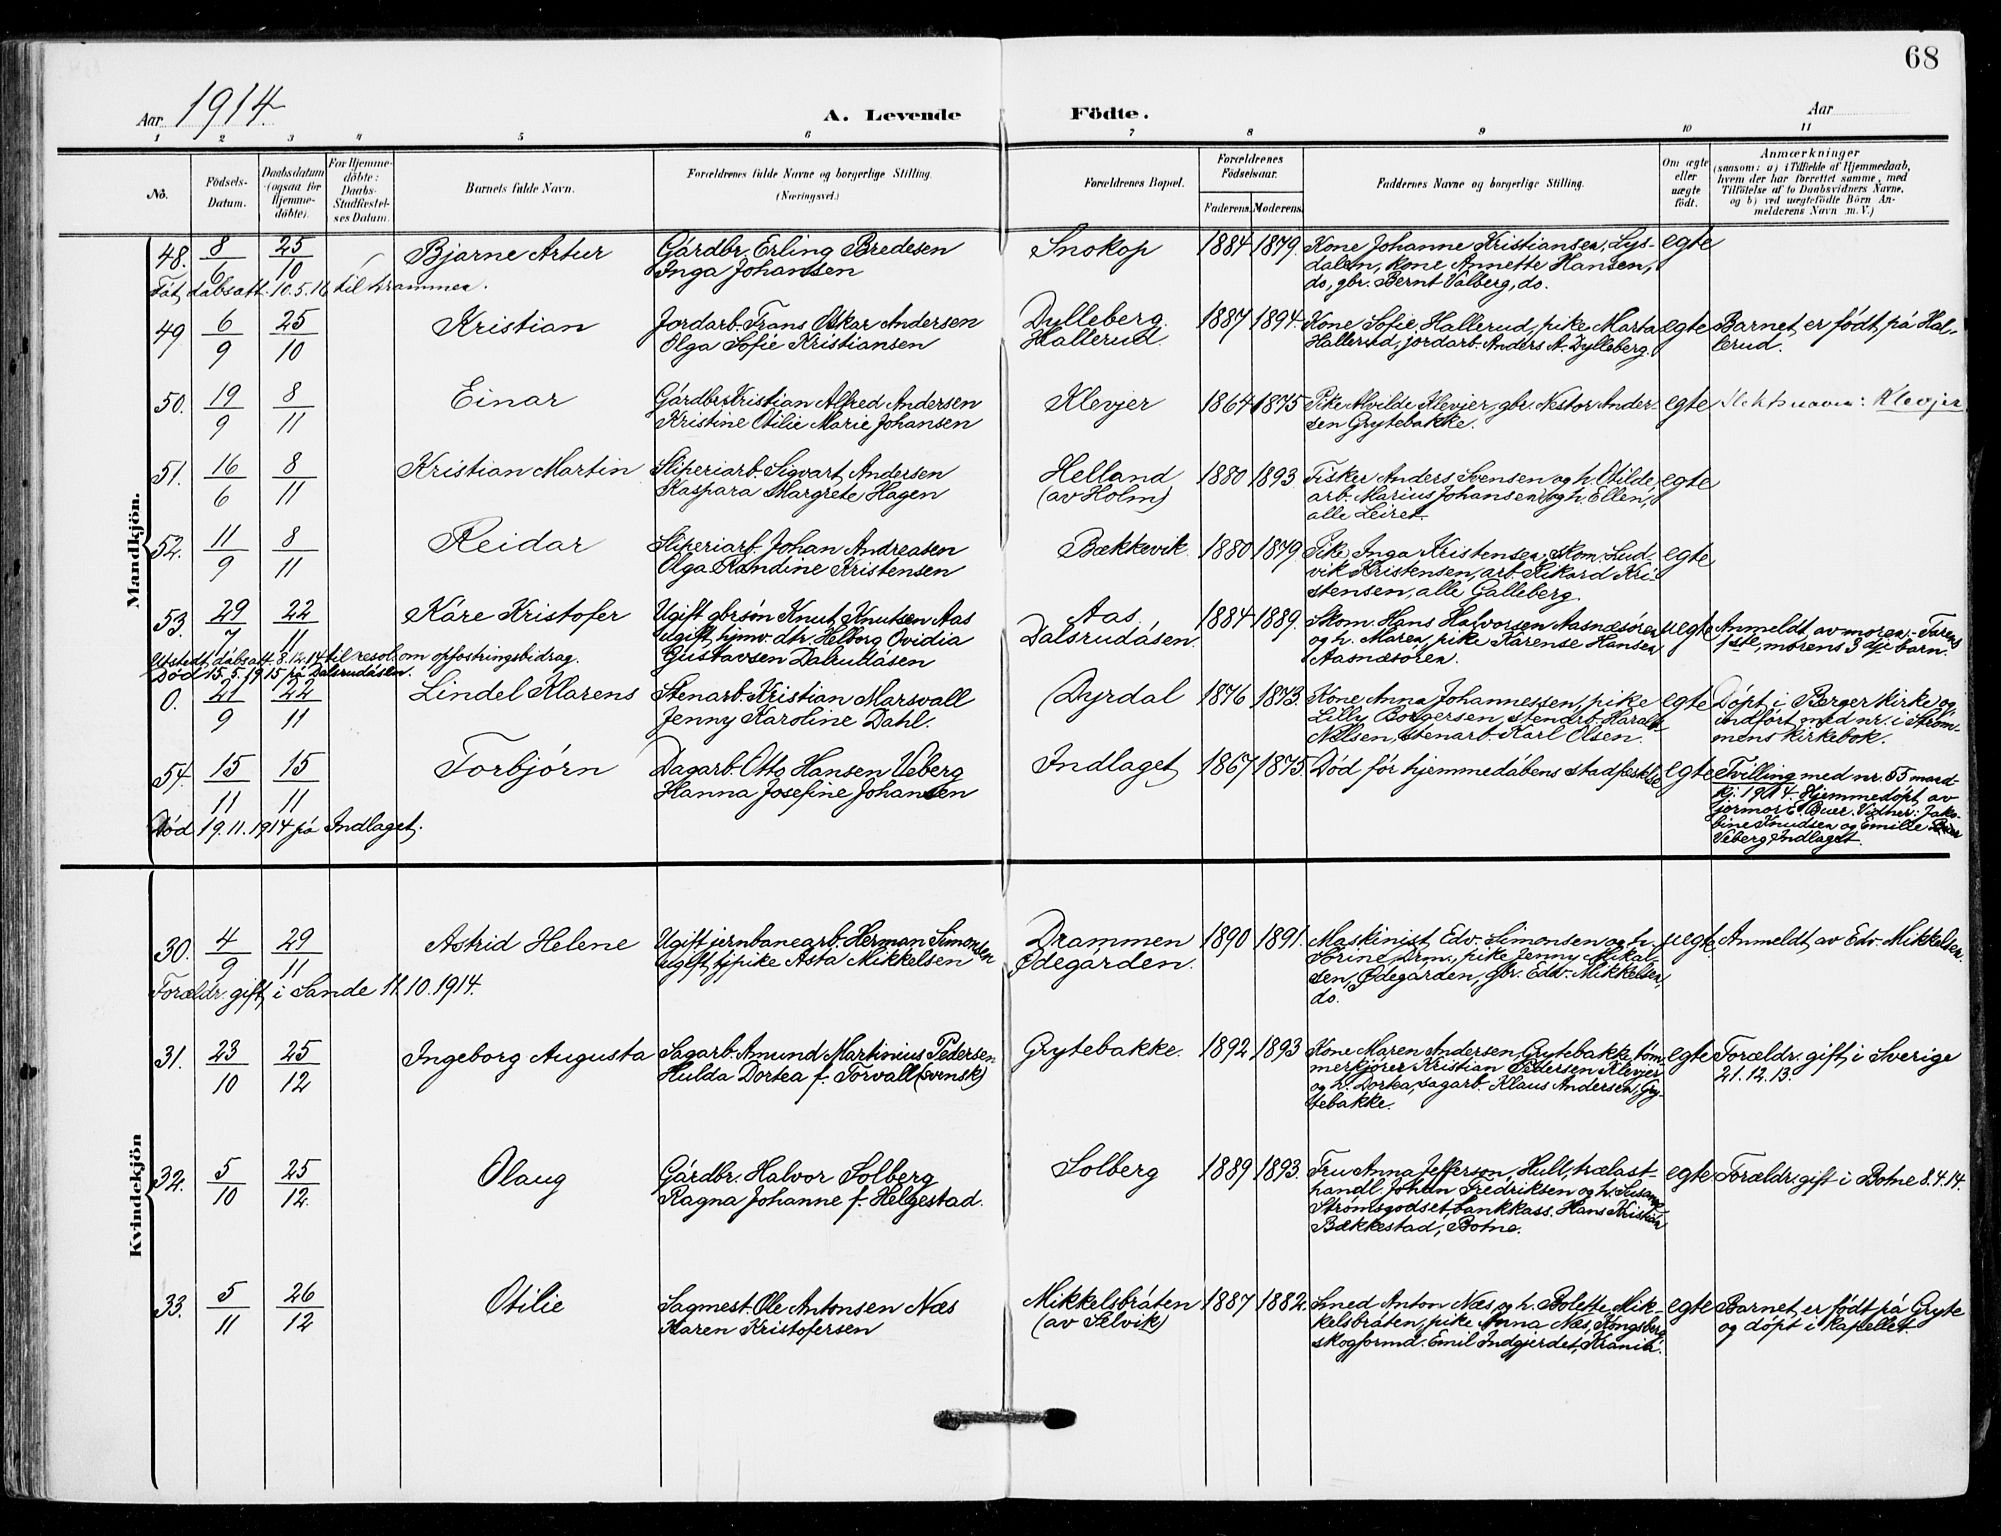 68
Aar 1914.
A. Levende Födte.
Aar
1 2 3 4 5 6 7 8 9 10 11
No.
Födsels-
Datum.
Daabsdatum
(ogsaa for
Hjemme-
döbte).
For Hjemme-
döbte:
Daabs-
Stadfæstel-
ses Datum.
Barnets fulde Navn.
Forældrenes fulde Navne og borgerlige Stilling.
(Næringsvei.)
Forældrenes Bopæl.
Forældrenes
Födselsaar.
Faderens. Moderens.
Faddernes Navne og borgerlige Stilling.
Om ægte
eller
uægte
födt.
Anmærkninger
(saasom: a) i Tilfælde af Hjemmedaab,
hvem der har forrettet samme, med
Tilföielse af to Daabsvidners Navne,
og b) ved uægtefödte Börn An-
melderens Navn m.V.)
Mandkjön.
48. 8/6 25/10 Bjarne Artur
Gårdbr. Erling Bredesen
Inga Johansen
Snokop 1884 1879.
Kone Johanne Kristiansen, Lys-
dalen, kone Annette Hansen,
do, gbr. Bernt Valberg, do.
egte
Fåt dåbsatt. 10.5.16 til Drammen.
49 6/9 25/10 Kristian
Jordarb. Frans Oskar Andersen
Olga Sofie Kristiansen
Dylleberg
Hallerud
1887 1894.
Kone Sofie Hallerud, pike Marta
Hallerud, jordarb. Anders A. Dylleberg.
egte
Barnet er født på Hal-
lerud.
50. 19/9 8/11 Einar
Gårdbr. Kristian Alfred Andersen
Kristine Otilie Marie Johansen
Klevjer 1864 1875
Pike Alvilde Klevjer, gbr. Nestor Ander-
sen Grytebakke.
egte
Slektsnavn: Klevjer
51. 16/6 8/11 Kristian Martin
Sliperiarb. Sigvart Andersen
Kaspara Margrete Hagen
Helland
(av Holm)
1880 1893.
Fisker Anders Svensen og h. Otilde,
arb. Marius Johansen og h. Ellen,
alle Leiret.
egte
52. 11/9 8/11 Reidar
Sliperiarb. Johan Andreasen
Olga Randine Kristensen
Bækkevik 1880 1879.
Pike Inga Kristensen, Skom. Lud-
vik Kristensen, arb. Rikard Kri-
stensen, alle Galleberg.
egte
53. 29/7 22/11 Kåre Kristofer
Ugift gbrsøn Knut Knutsen Aas
ugift hjmv. dtr. Helborg Ovidia
Gustavsen Dalsrudåsen
Aas
Dalsrudåsen.
1884 1889.
Skom. Hans Halvorsen Aasnæsøren
og h. Maren, pike Karense Hansen
Aasnæsøren.
uegte
Anmeldt av moren. - Farens
1ste, morens 3dje barn.
Utstedt dåbsatt. 8.12.14 til resol. om opfostringsbidrag.
Død 15.5.1915 på Dalsrudåsen.
0. 21/9 22/11 Lindel Klarens
Stenarb. Kristian Marsvall
Jenny Karoline Dahl.
Dyrdal 1876 1873.
Kone Anna Johannessen, pike
Lilly Borgersen, stenarb. Harald
Nilsen, stenarb. Karl Olsen.
egte
Døpt i Berger kirke og
indført med nr. i Strøm-
mens kirkebok.
54. 15/11 15/11 Torbjørn
Dagarb. Otto Hansen Veberg
Hanna Josefine Johansen
Indlaget 1867 1875.
Død før hjemmedåbens stadfæstelse
egte
Tvilling med nr. 55 mand-
kj. 1914. Hjemmedøpt av
jormor E. Buer. Vidner: Jako-
bine Knudsen og Emilie
Veberg Indlaget.
Død 19.11.1914 på Indlaget.
Kvindekjön
30. 4/9 29/11 Astrid Helene
Ugift jernbanearb. Herman Simonsen
ugift tjpike Asta Mikkelsen
Drammen
Ødegården.
1890 1891.
Maskinist Edv. Simonsen og h.
Torine Drm., pike Jenny Mikal-
sen, Ødegården, gbr. Edv. Mikkelsen,
do.
uegte
Anmeldt av Edv. Mikkelsen.
Forældr. gift i Sande 11.10.1914.
31. 23/10 25/12 Ingeborg Augusta
Sagarb. Amund Martinius Pedersen
Hulda Dortea f. Torvall (svensk)
Grytebakke. 1892 1893
Kone Maren Andersen, Grytebakke, tøm-
merkjører Kristian Pedersen Klevjer
og h. Dortea, sagarb. Klaus Andersen, Gry-
tebakke.
egte
Forældr. gift i Sverige
21.12.13.
32. 5/10 25/12. Olaug
Gårdbr. Halvor Solberg
Ragna Johanne f. Helgestad.
Solberg 1889 1893.
Fru Anna Jefferson, Hull, trælast-
handl. Johan Fredriksen og h. Susanna
Strømsgodset, bankkass. Hans Kristian
Bækkestad, Botne.
egte
Forældr. gift i Botne 8.4.14.
33. 5/11 26/12 Otilie
Sagmest. Ole Antonsen Næs
Karen Kristofersen
Mikkelsbråten
(av Selvik)
1887 1882.
Smed Anton Næs og h. Bolette Mik-
kelsbråten, pike Anna Næs, Kongsberg,
skogformd. Emil Indgjerdet, Krania.
egte
Barnet er født på Gryte
og døpt i kapellet.